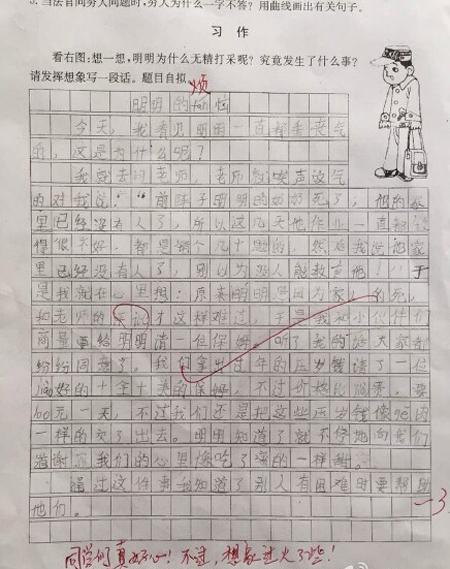 3. 当法官问穷人问题时，穷人为什么一字不答？用曲线画出有关句子。
习 作
看右图：想一想，明明为什么无精打采呢？究竟发生了什么事？
请发挥想象写一段话。题目自拟
烦
明明的fan恼
今天，我看见明明一直都垂丧气
的，这是为什么呢？
我去问老师，老师唉声叹气
的对我说："前阵子明明的奶奶死了，他的家
里已经没有人了，所以这几天他作业一直都
很不好，都是错个几十题的，
里已经没有人了，别以为没人能教育他！！于
是我就在心里想：原来明明是因为家人的死，
和老师的 才这样难过，于是我和小伙伴们
商量 给明明请一位保姆。听了我的 大家都
纷纷同意了。我们拿出过年的压岁钱请了一位
很好的十全十美的保姆，不过价格比较贵。要
100元一天，不过我们还是把这些压岁钱像 肉
一样的交了出去。明明知道了就不停地向我们
道谢 我们的心里像吃了 的一样甜。
通过这件事我知道了别人有困难时要帮助
他们。
-3
同学们真好心！不过，想象过火了些！